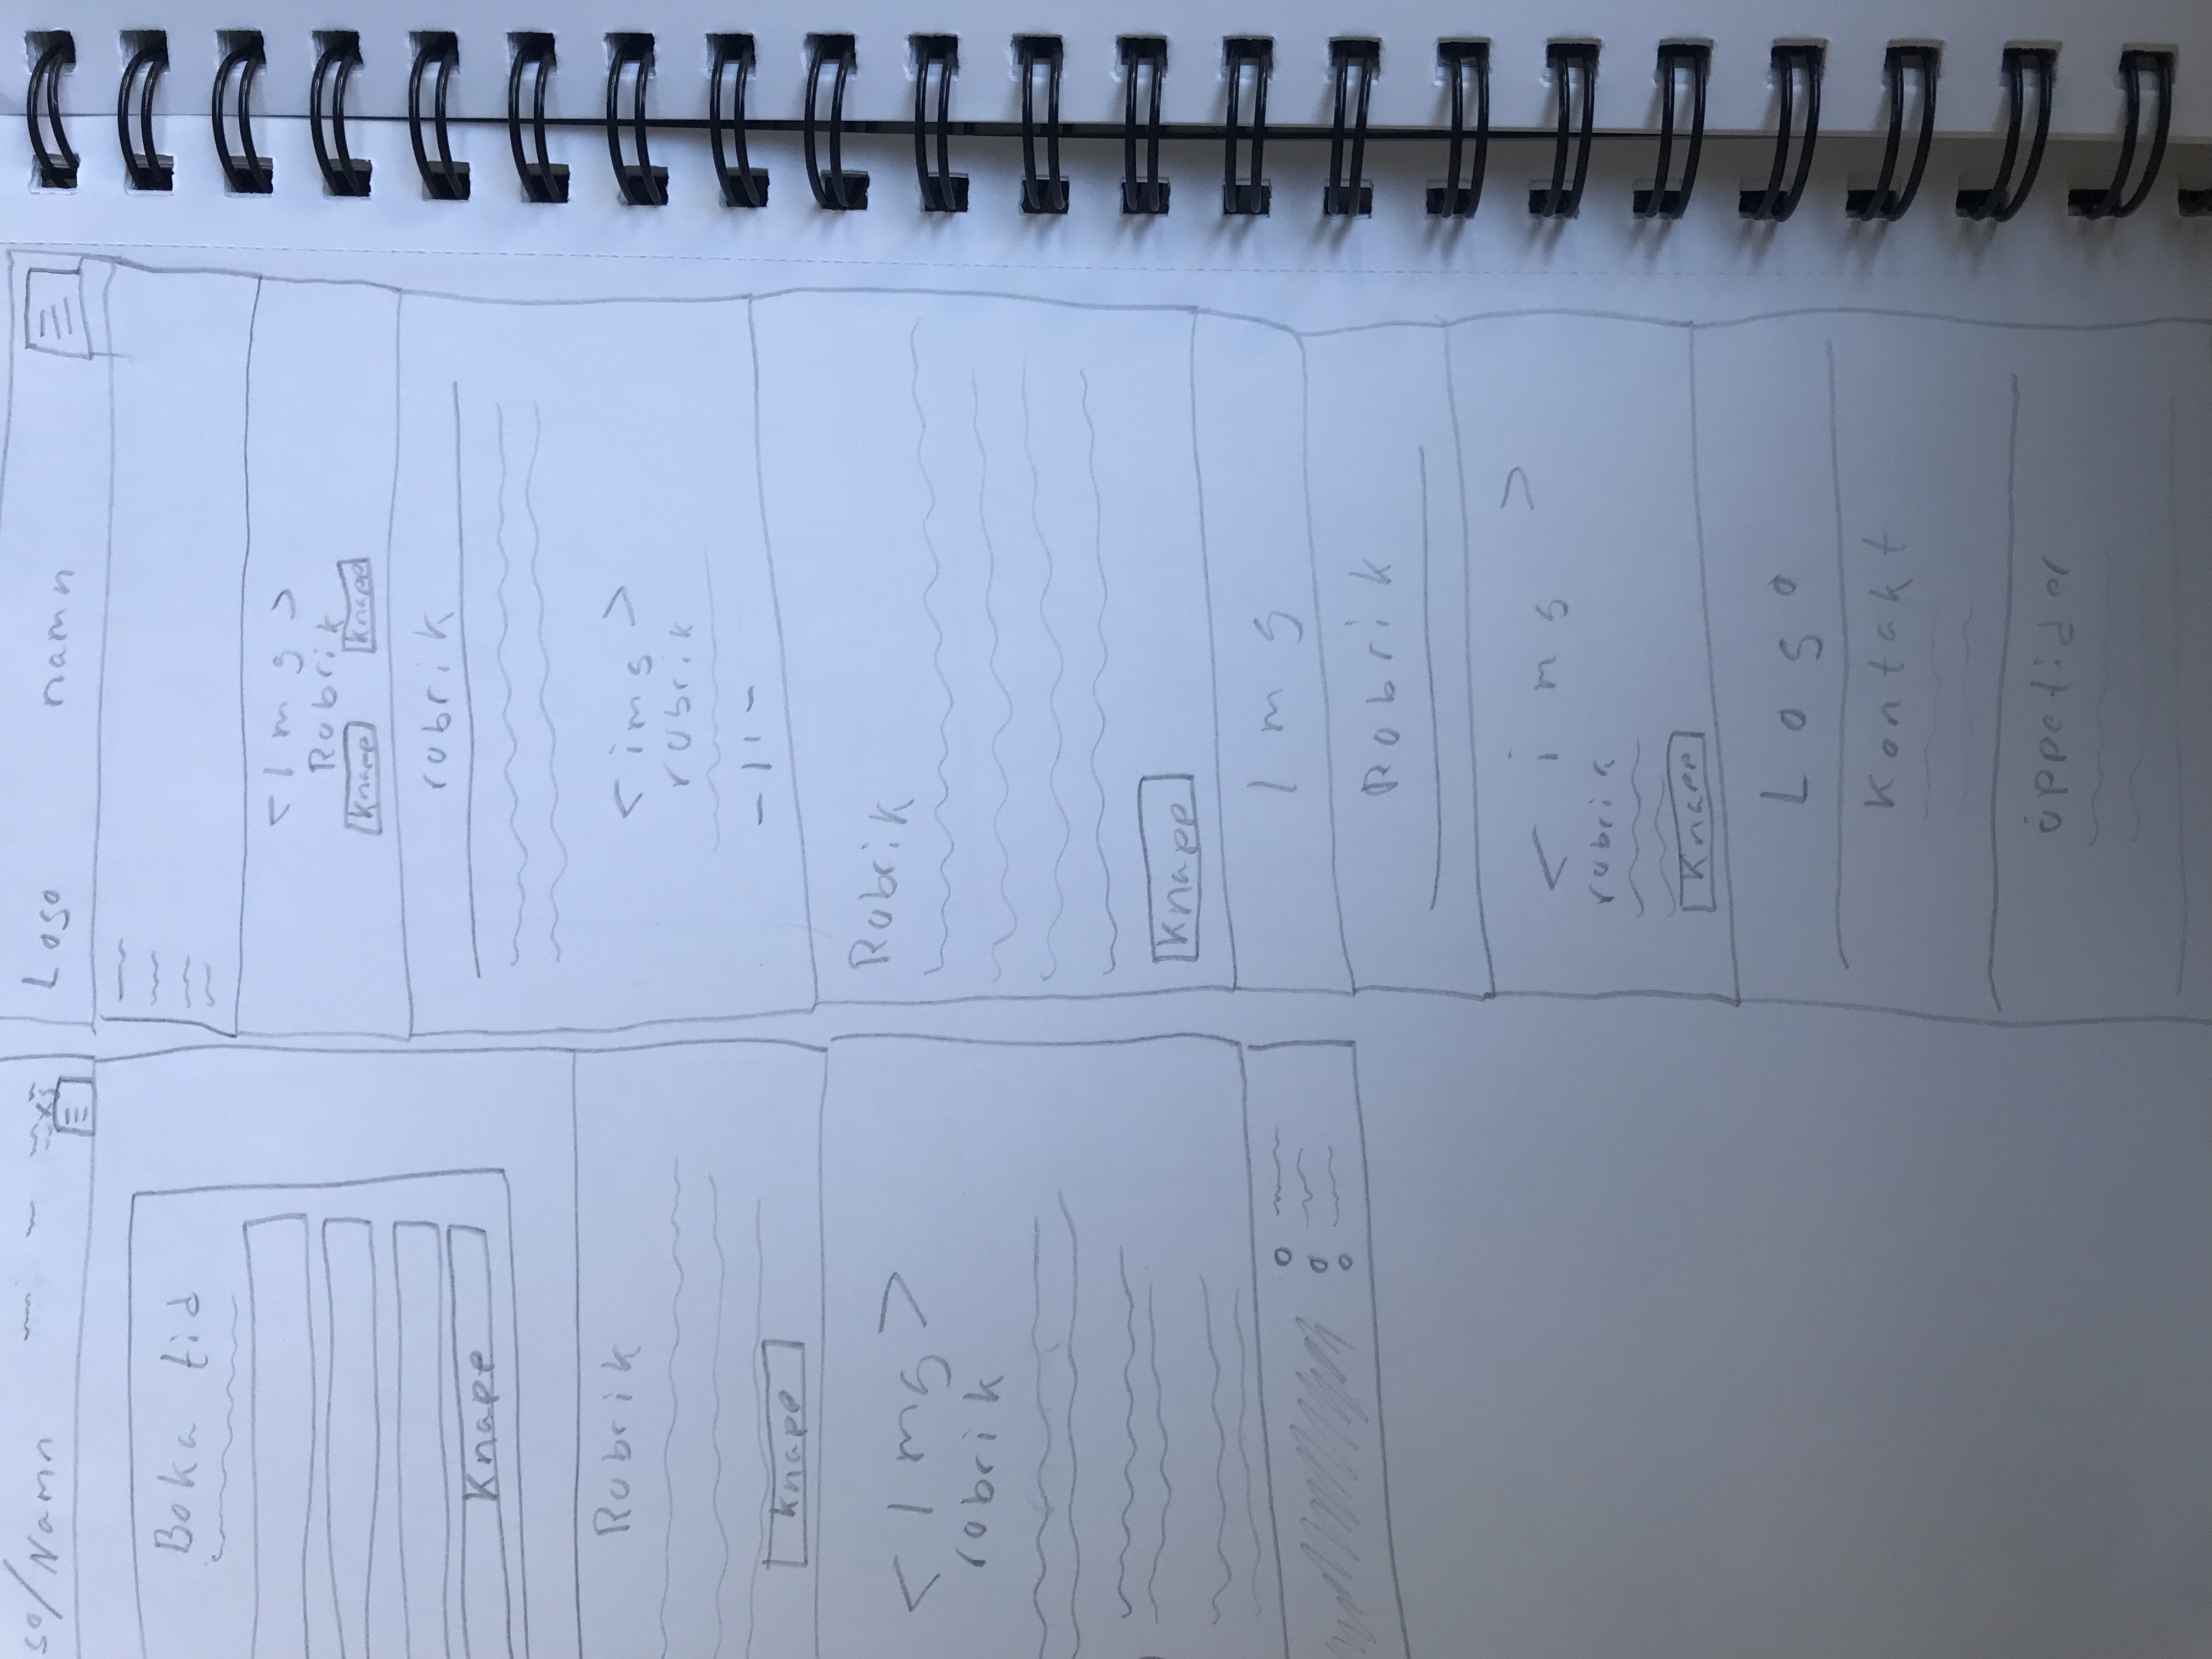 so/Namn
xs
Boka tid
Knapp
Rubrik
Knapp
<Img>
rubrik
Logo namn
<Img>
Rubrik
Knapp Knapp
rubrik
<img>
rubrik
-11-
Rubrik
Knapp
Img
Rubrik
<img>
rubrik
Knapp
Logo
Kontakt
öppetider